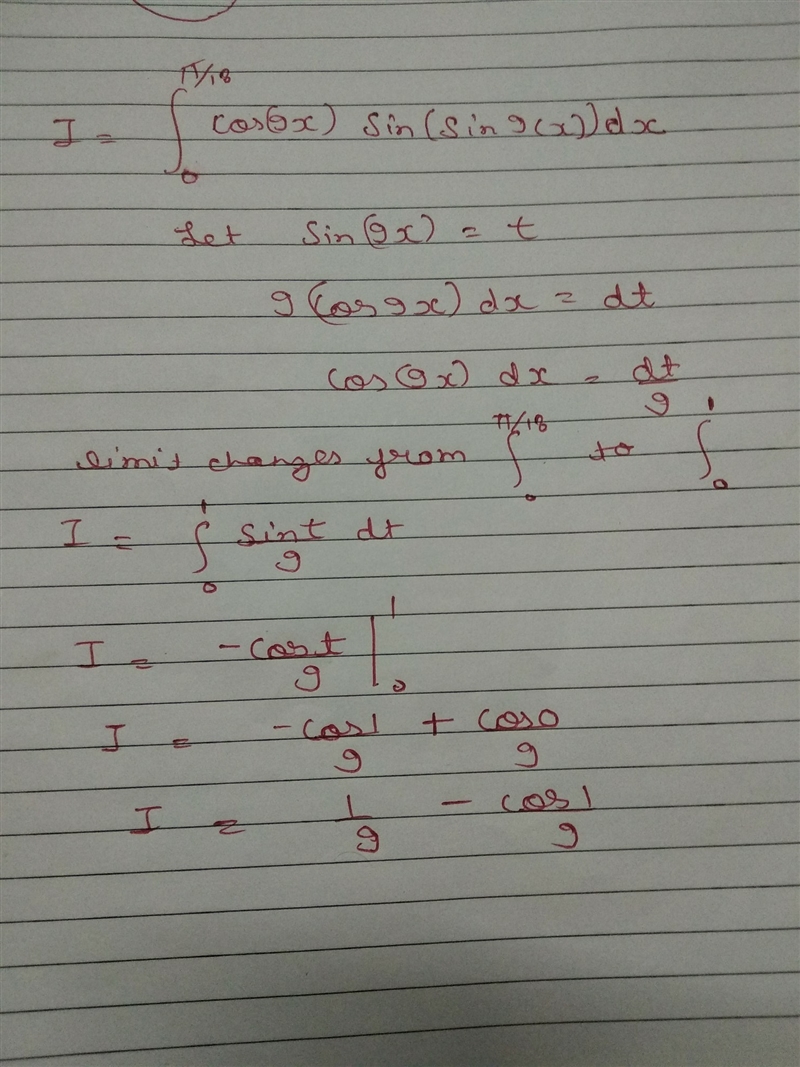 I = ∫₀^π/18 cos(9x) sin(sin 9(x)) dx
Let sin(9x) = t
9(cos 9x) dx = dt
cos(9x) dx = dt/9
limit changes from ∫₀^π/18 to ∫₀^1
I = ∫₀^1 sint/9 dt
I = -cost/9 |₀^1
I = -cos1/9 + cos0/9
I = 1/9 - cos1/9